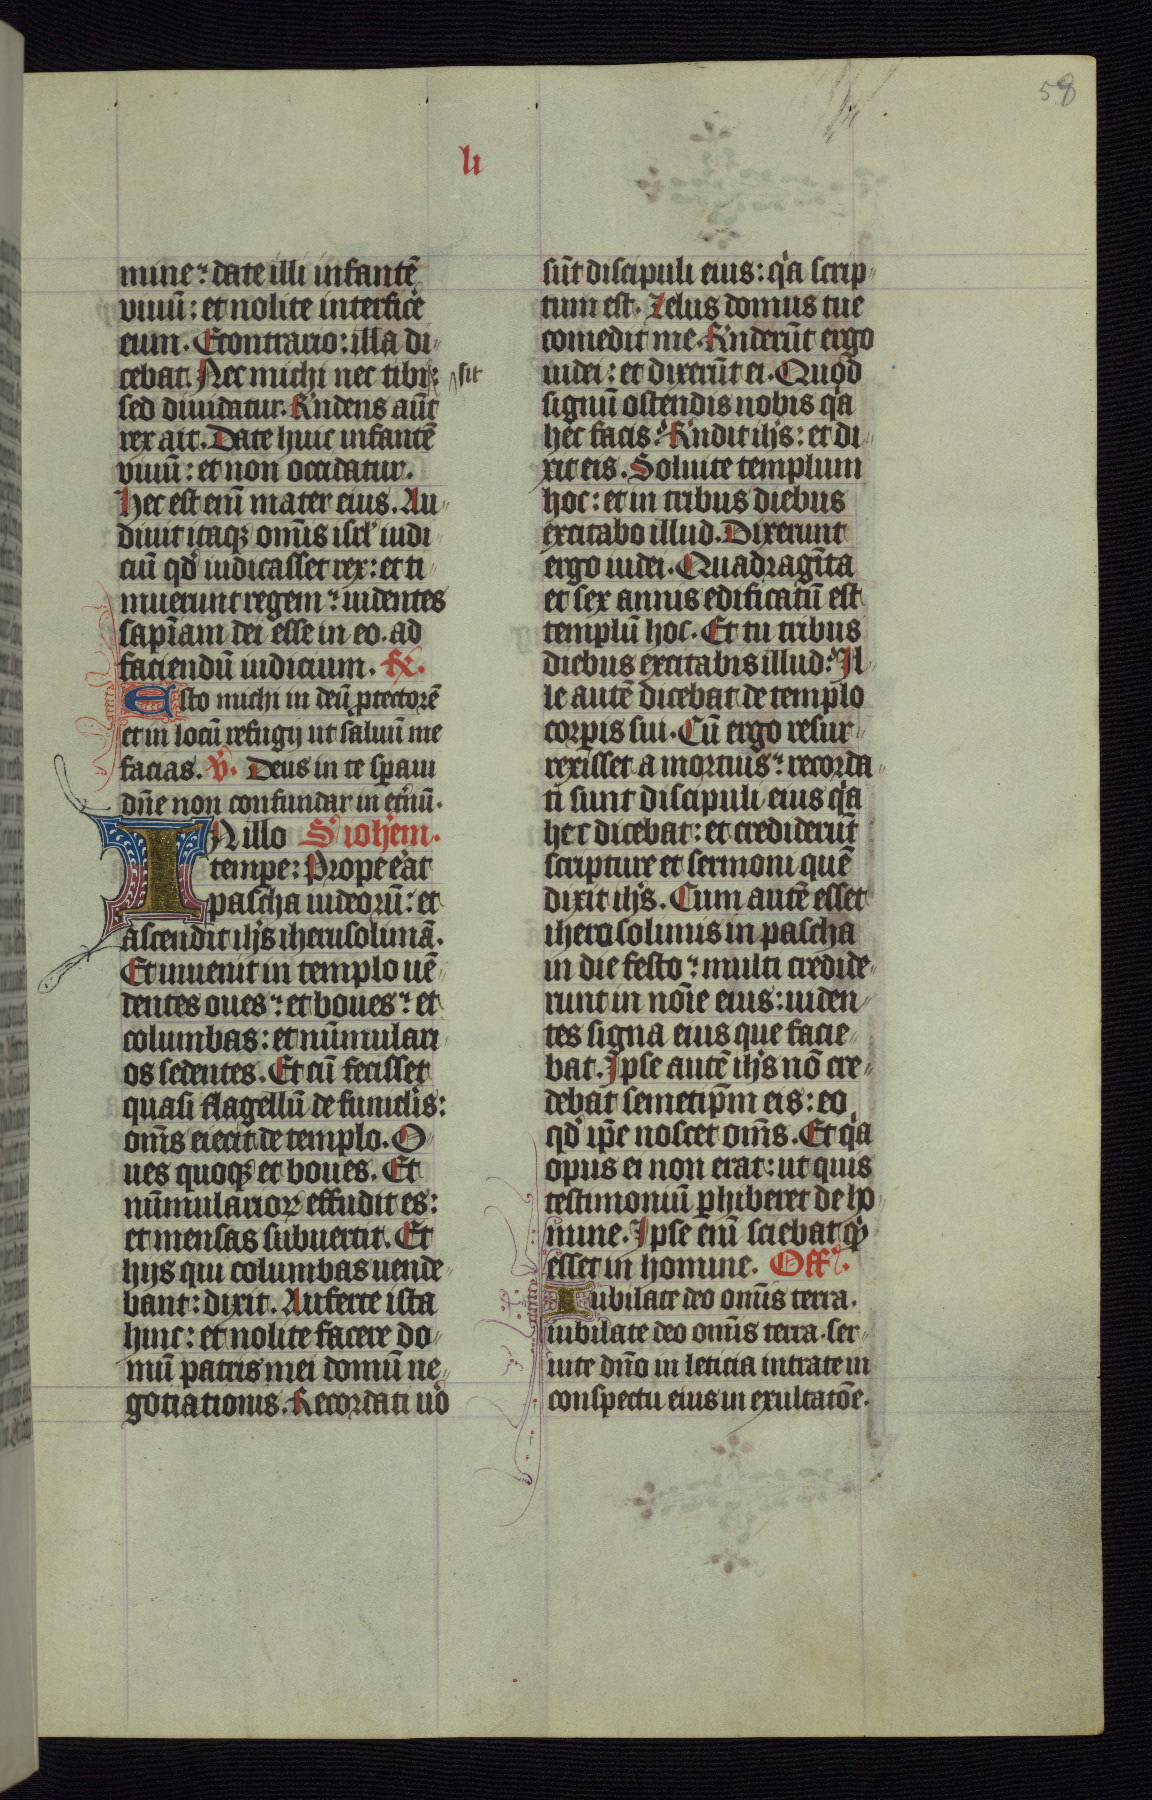 58
li
mine: date illi infantē
viuū: et nolite interfice᷑
eum. Econtrario: illa di-
cebat. Nec michi nec tibi: sit
sed diuidatur. Rn̄dens aūt
rex ait. Date huic infantē
viuū: et non occidatur.
Hec est enī mater eius. Au-
diuit itaqꝫ om̄is isrl̓ iudi-
ciū qd̓ iudicasset rex: et ti-
muerunt regem: uidentes
sapīam dei esse in eo. ad
faciendū iudicium. R̄.
Esto michi in deū ꝓtectorē
et in locū refugij ut saluū me
facias. V̄. Deus in te sꝑaui
dn̄e non confundar in et̓nū.
IN illo S iohēm.
tempe: Prope e᷑at
pascha iudeorū: et
ascendit ih̄s iherusolimā.
Et inuenit in templo uē-
dentes oues: et boues: et
columbas: et nūmulari
os sedentes. Et cū fecisset
quasi flagellū de funicl̓is:
om̄s eiecit de templo. O-
ues quoqꝫ et boues. Et
nūmularioꝝ effudit es:
et mensas subuertit. Et
hijs qui columbas uende-
bant: dixit. Auferte ista
hinc: et nolite facere do-
mū patris mei domū ne-
gotiationis. Recordati uo̓
sūt discipuli eius: qͥa scrip-
tum est. Zelus domus tue
comedit me. Rn̄derūt ergo
iudei: et dixerūt ei. Quod
signū ostendis nobis qͥa
hec facis? Rn̄dit ih̄s: et di-
xit eis. Soluite templum
hoc: et in tribus diebus
excitabo illud. Dixerunt
ergo iudei. Quadragīta
et sex annis edificatū est
templū hoc. Et tu tribus
diebus excitabis illud? Il-
le autē dicebat de templo
corꝑis sui. Cū ergo resur-
rexisset a mortuis: recorda-
ti sunt discipuli eius qͥa
hec dicebat: et crediderūt
scripture et sermoni quē
dixit ih̄s. Cum autē esset
iherosolimis in pascha
in die festo: multi credide-
runt in noīe eius: uiden-
tes signa eius que facie-
bat. Ipse autē ih̄s nō cre-
debat semetip̄m eis: eo
qd̓ ip̄e nosset om̄s. Et qͥa
opus ei non erat: ut quis
testimoniū ꝑhiberet de ho-
mine. Ipse enī sciebat qͥd
esset in homine. Off᷑.
Iubilate deo om̄is terra.
iubilate deo om̄is terra. ser-
uite dn̄o in leticia intrate in
conspectu eius in exultatōe.